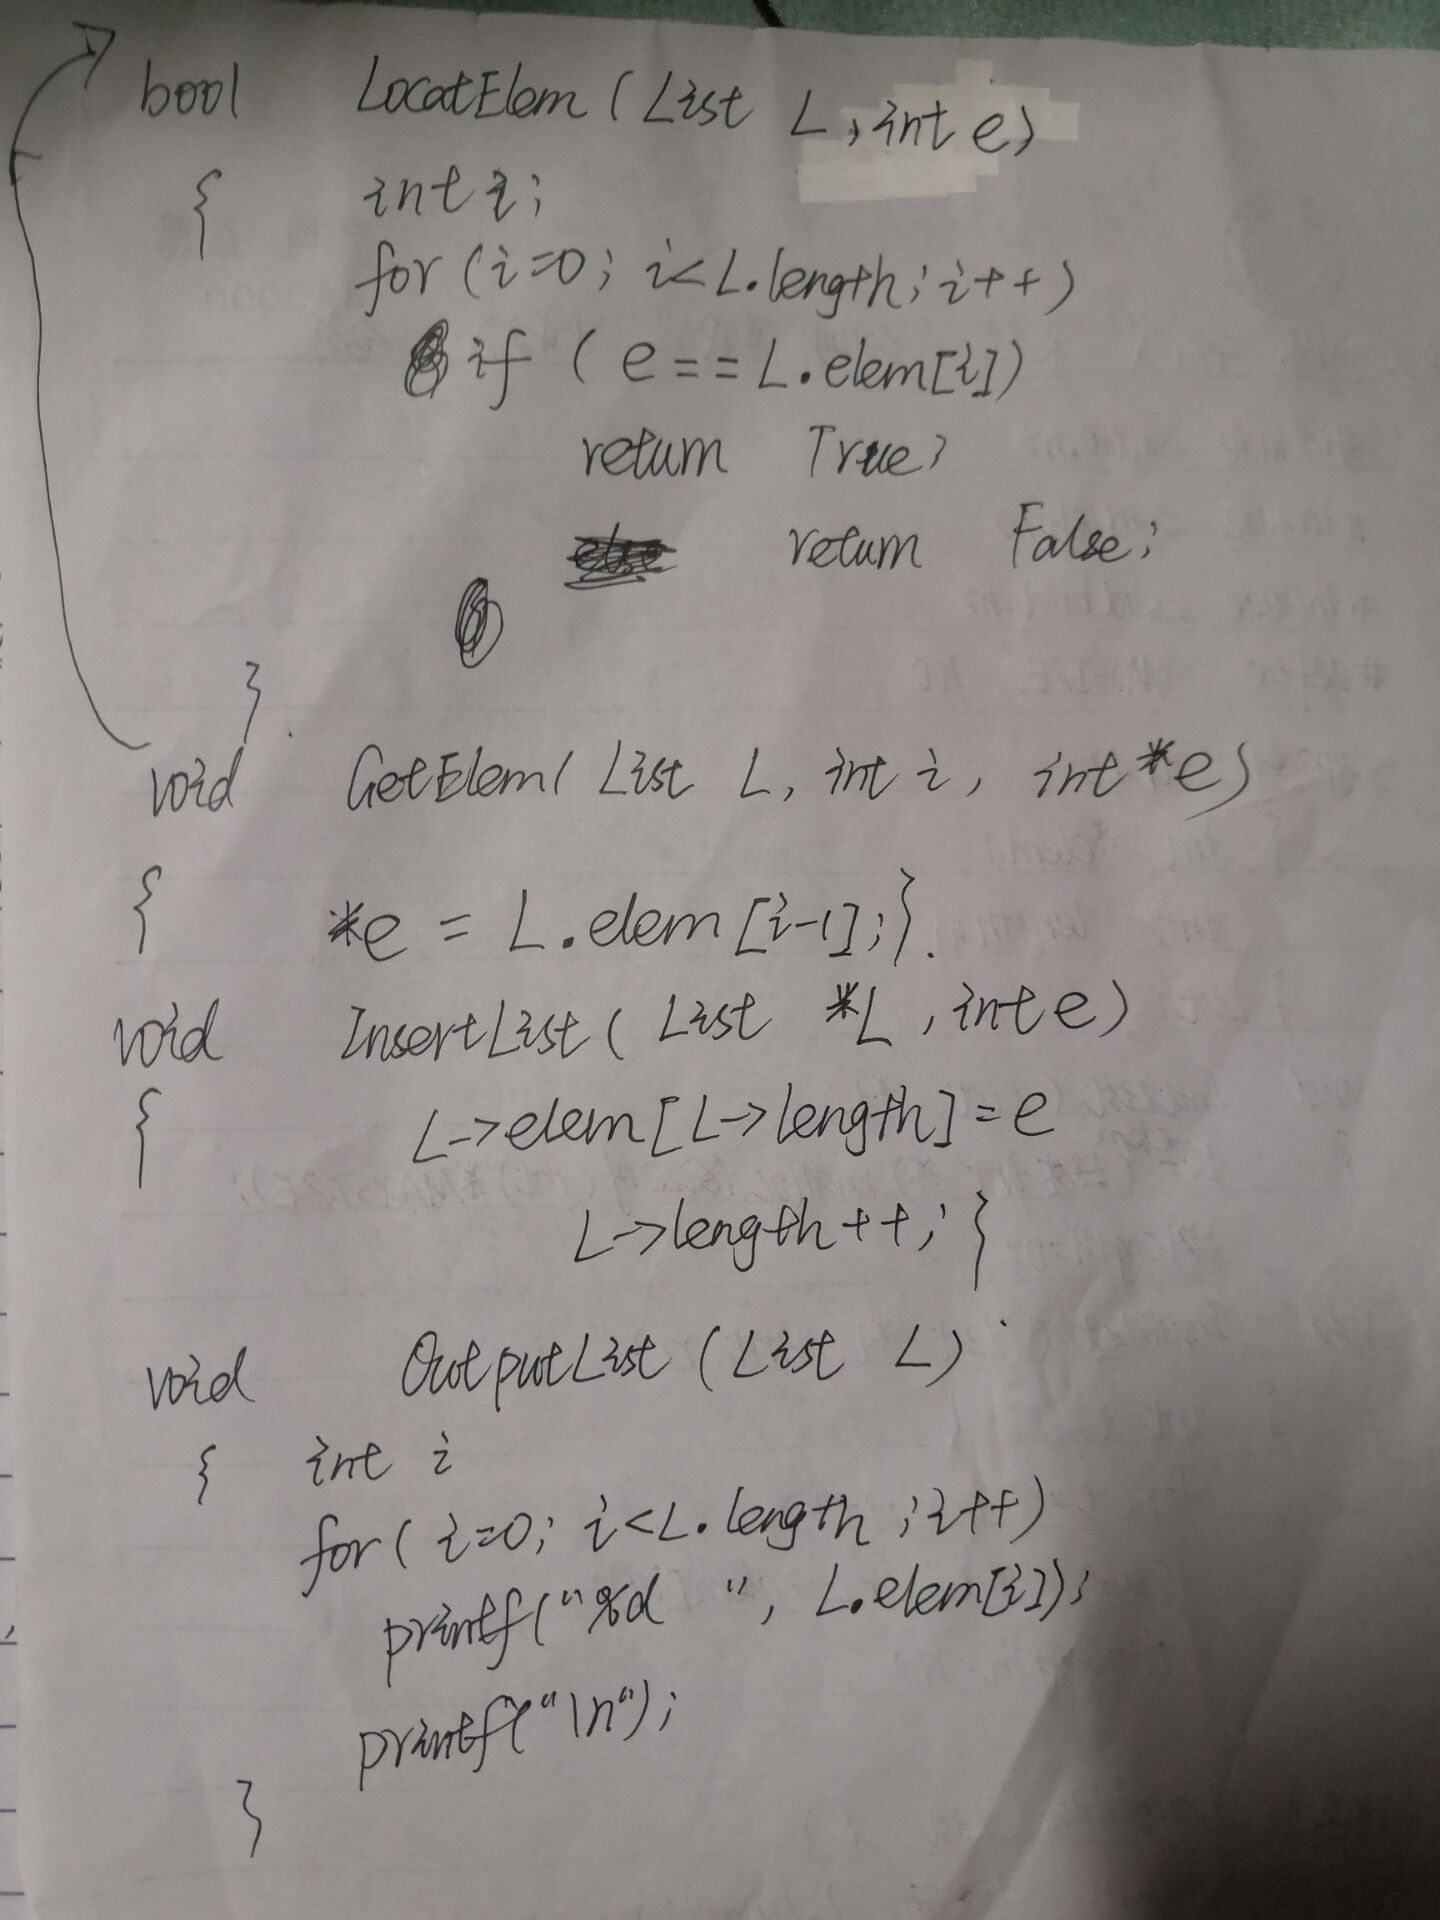 bool LocatElem (List L, int e)
{ int i;
for (i=0; i<L.length; i++)
if (e==L.elem[i])
return True;
return False;
}
void GetElem( List L, int i, int *e)
{ *e = L.elem[i-1];}
void InsertList( List *L, int e)
{ L->elem[L->length]=e
L->length++; }
void OutputList (List L)
{ int i
for( i=0; i<L.length ;i++)
printf("%d ", L.elem[i]);
printf("\n");
}